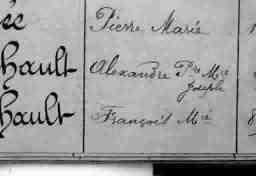 ée Pierre Marie 1
hault Alexandre Pre Mie
Joseph
hault François Mie 8